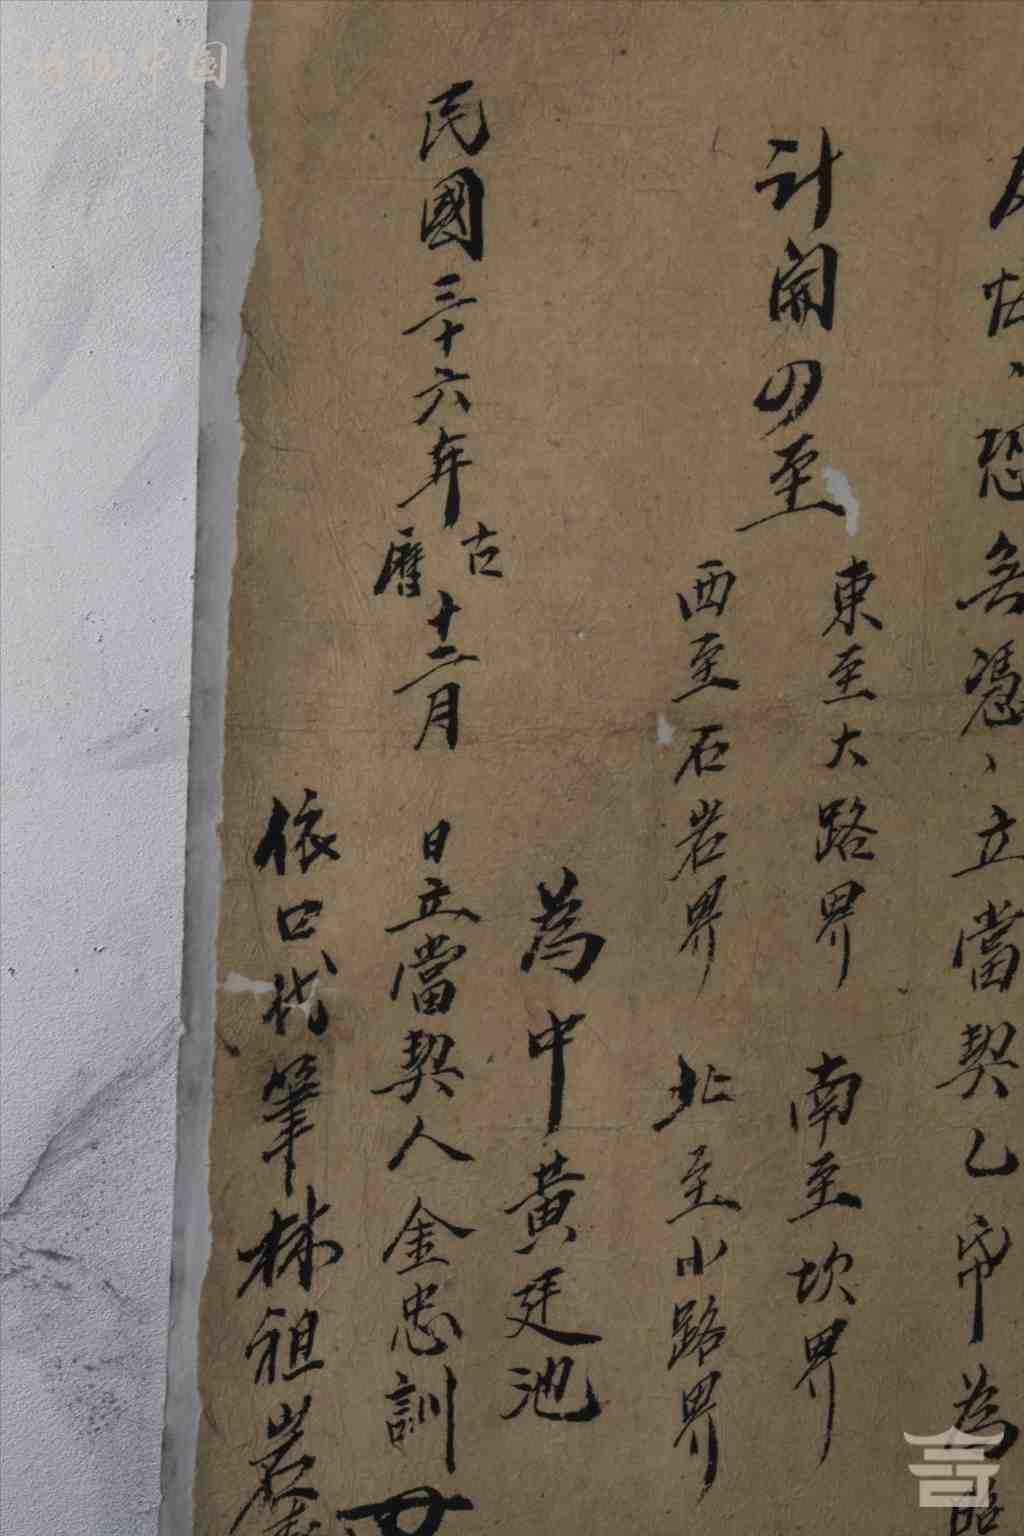 恐無憑、立當契乙帋為
計開四至
東至大路界 南至坎界
西至石岩界 北至小路界
為中黃廷池
民國三十六年古曆十二月 日立當契人金忠訓
依口代筆林祖岩